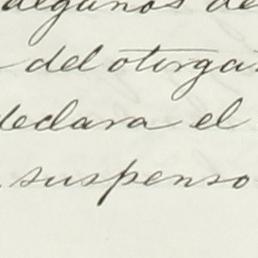 algunos de
del otorga
declara el
suspenso